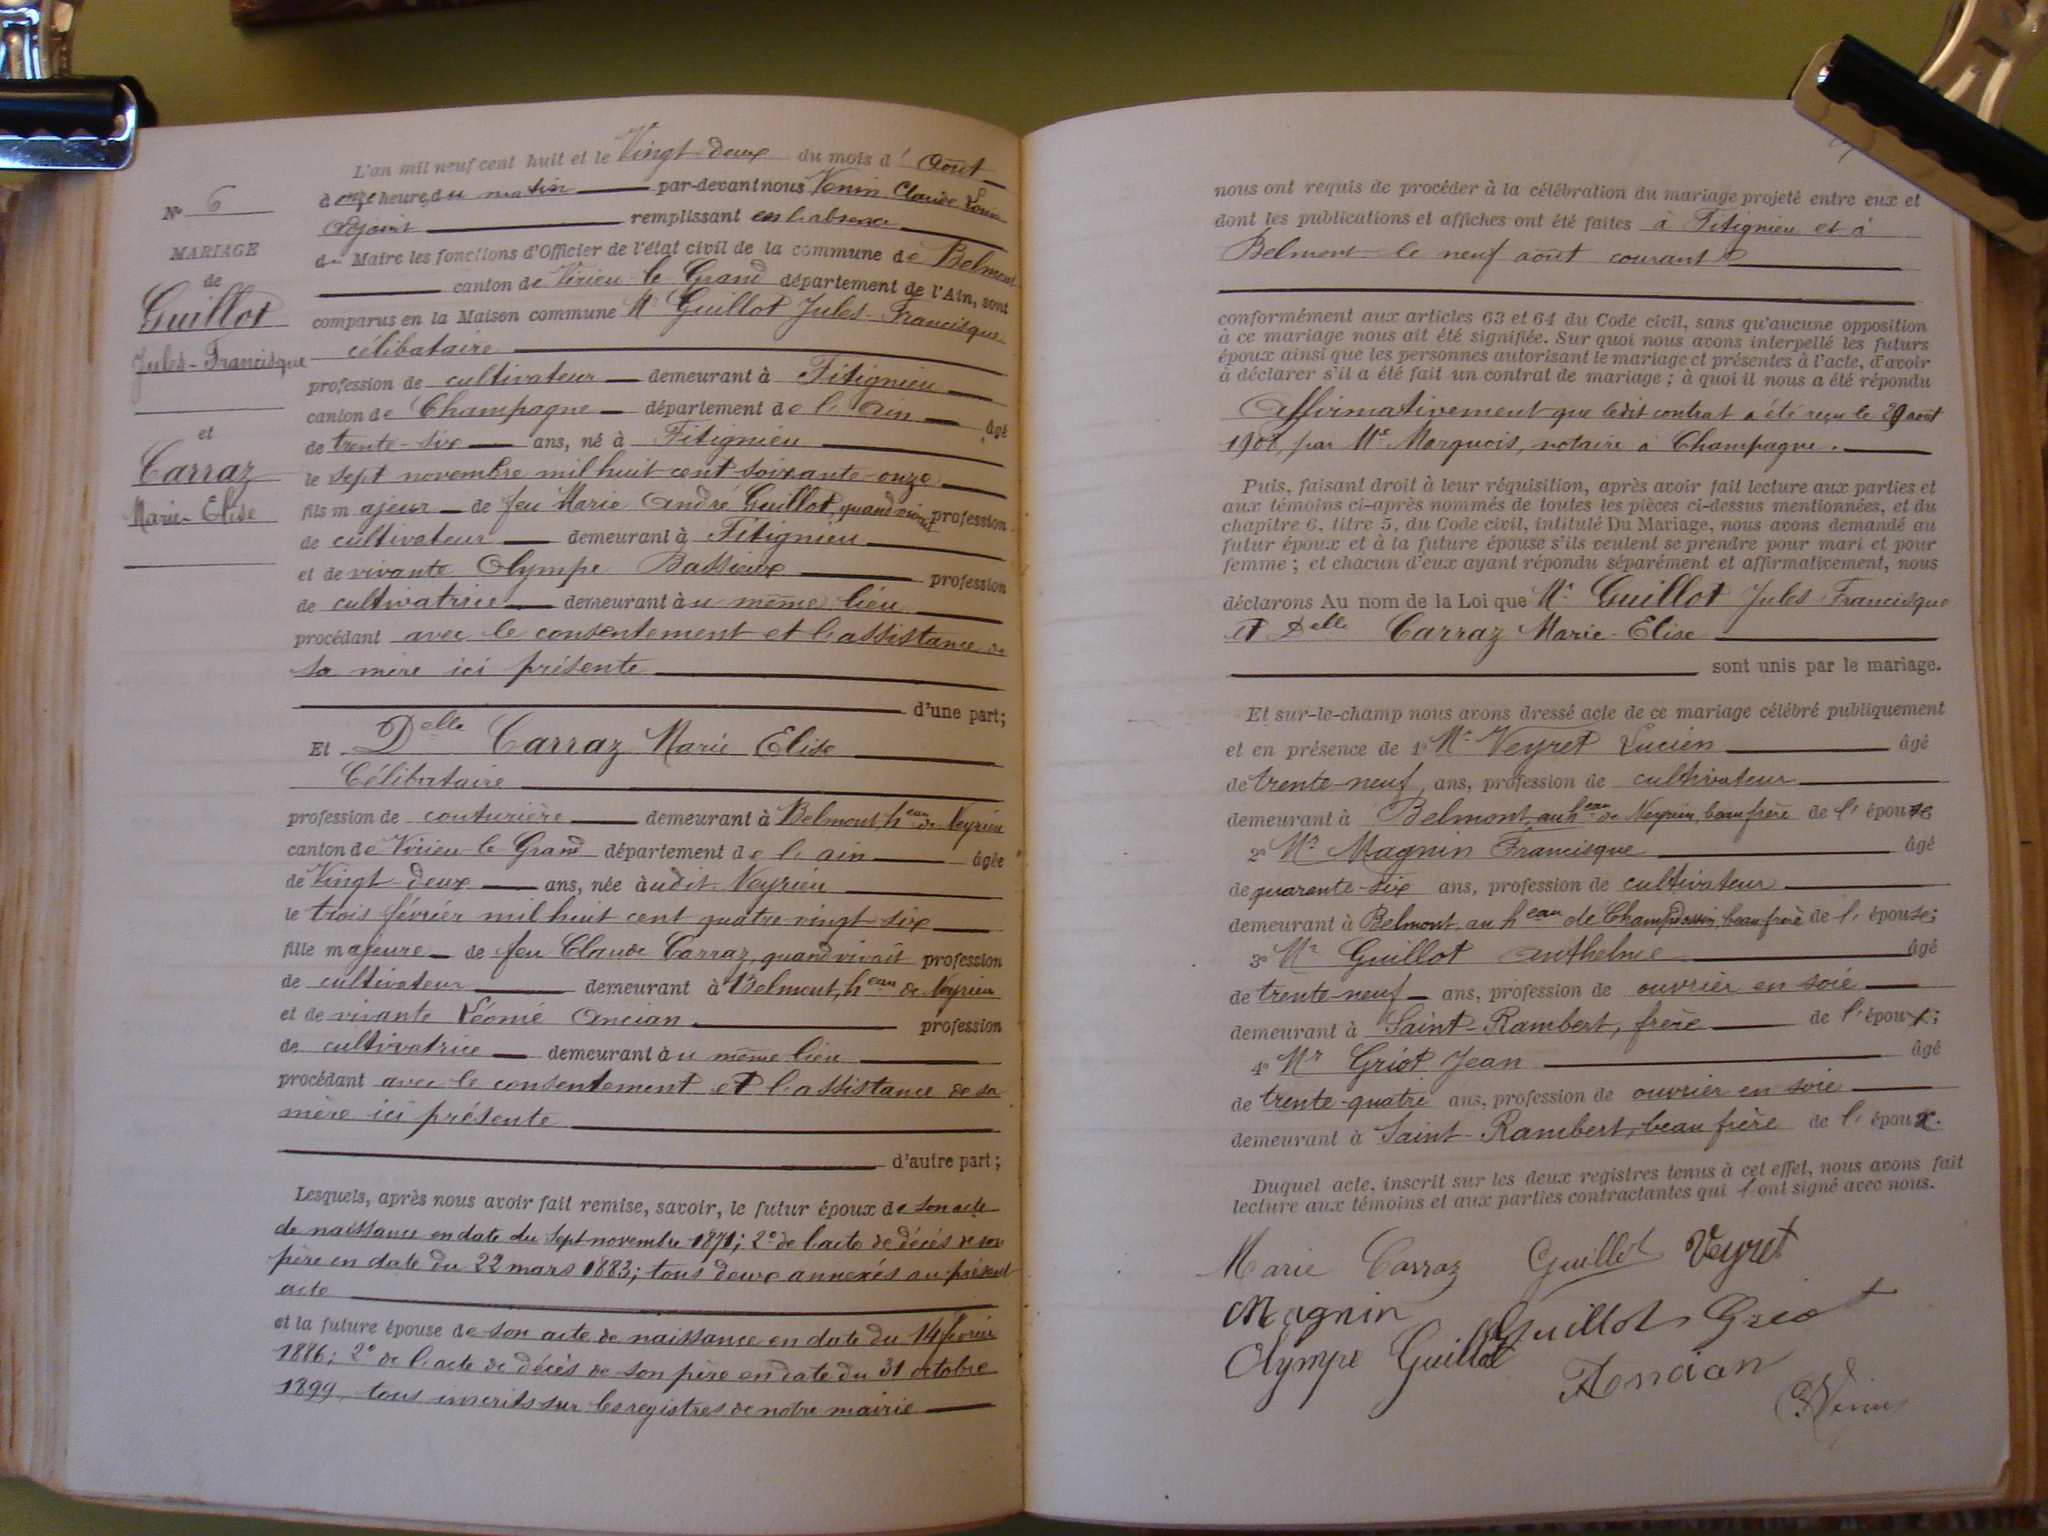 L'an mil neuf cent huit et le Vingt-deux du mois d'Août
à onze heures du matin par-devant nous Venin Claude Louis
Adjoint remplissant en l'absence
du Maire les fonctions d'Officier de l'état civil de la commune de Belmont
canton de Virieu-le-Grand département de l'Ain, sont
comparus en la Maison commune Mr Guillot Jules-Francisque
célibataire
profession de cultivateur demeurant à Fitignieu
canton de Champagne département de l'Ain âgé
de trente-six ans, né à Fitignieu
le sept novembre mil huit cent soixante-onze
fils majeur de feu Marie André Guillot, quand vivait profession
de cultivateur demeurant à Fitignieu
et de vivante Olympe Bassieux profession
de cultivatrice demeurant au même lieu
procédant avec le consentement et l'assistance de
sa mère ici présente
d'une part;
Et Delle Carraz Marie Elise
Célibataire
profession de couturière demeurant à Belmont, heau de Neyrieu
canton de Virieu-le-Grand département de l'ain âgée
de Vingt-deux ans, née audit Neyrieu
le trois février mil huit cent quatre-vingt-six
fille majeure de feu Claude Carraz, quand vivait profession
de cultivateur demeurant à Belmont, heau de Neyrieu
et de vivante Léonie Ancian profession
de cultivatrice demeurant au même lieu
procédant avec le consentement et l'assistance de sa
mère ici présente
d'autre part;
Lesquels, après nous avoir fait remise, savoir, le futur époux de son acte
de naissance en date du sept novembre 1871; 2° de l'acte de décès de son
père en date du 22 mars 1883; tous deux annexés au présent
acte
et la future épouse de son acte de naissance en date du 14 février
1886; 2° de l'acte de décès de son père en date du 31 octobre
1899, tous inscrits sur les registres de notre mairie
N° 6
MARIAGE
de
Guillot
Jules-Francisque
et
Carraz
Marie-Elise
nous ont requis de procéder à la célébration du mariage projeté entre eux et
dont les publications et affiches ont été faites à Fitignieu et à
Belmont le neuf août courant
conformément aux articles 63 et 64 du Code civil, sans qu'aucune opposition
à ce mariage nous ait été signifiée. Sur quoi nous avons interpellé les futurs
époux ainsi que les personnes autorisant le mariage et présentes à l'acte, d'avoir
à déclarer s'il a été fait un contrat de mariage; à quoi il nous a été répondu
Affirmativement que ledit contrat a été reçu le août
1908, par Me Marquois, notaire à Champagne.
Puis, faisant droit à leur réquisition, après avoir fait lecture aux parties et
aux témoins ci-après nommés de toutes les pièces ci-dessus mentionnées, et du
chapitre 6, titre 5, du Code civil, intitulé Du Mariage, nous avons demandé au
futur époux et à la future épouse s'ils veulent se prendre pour mari et pour
femme; et chacun d'eux ayant répondu séparément et affirmativement, nous
déclarons Au nom de la Loi que Mr Guillot Jules Francisque
et Delle Carraz Marie-Elise
sont unis par le mariage.
Et sur-le-champ nous avons dressé acte de ce mariage célébré publiquement
et en présence de 1° Mr Veyret Lucien âgé
de trente-neuf, ans, profession de cultivateur
demeurant à Belmont, au heau de Neyrieu, beau frère de l'épouse
2° Mr Magnin Francisque âgé
de quarente-six ans, profession de cultivateur
demeurant à Belmont, au heau de Champdossin, beau frère de l'épouse;
3° Mr Guillot Anthelme âgé
de trente-neuf ans, profession de ouvrier en soie
demeurant à Saint-Rambert, frère de l'époux;
4° Mr Griot Jean âgé
de trente-quatre ans, profession de ouvrier en soie
demeurant à Saint-Rambert, beau frère de l'époux.
Duquel acte, inscrit sur les deux registres tenus à cet effet, nous avons fait
lecture aux témoins et aux parties contractantes qui l'ont signé avec nous.
Marie Carraz Guillot Veyret
Magnin Guillot Griot
Olympe Guillot
Ancian
Venin